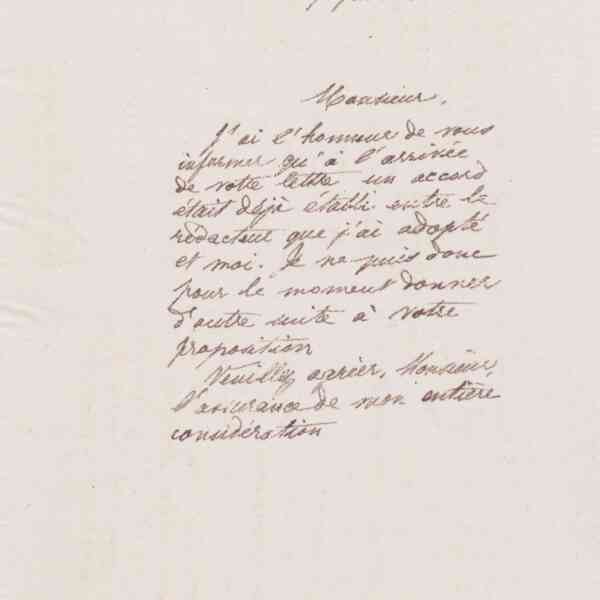 Monsieur,
J'ai l'honneur de vous
informer qu'à l'arrivée
de votre lettre un accord
était déjà établi entre le
rédacteur que j'ai adopté
et moi. Je ne puis donc
pour le moment donner
d'autre suite à votre
proposition
Veuillez agréer, Monsieur,
l'assurance de mon entière
considération